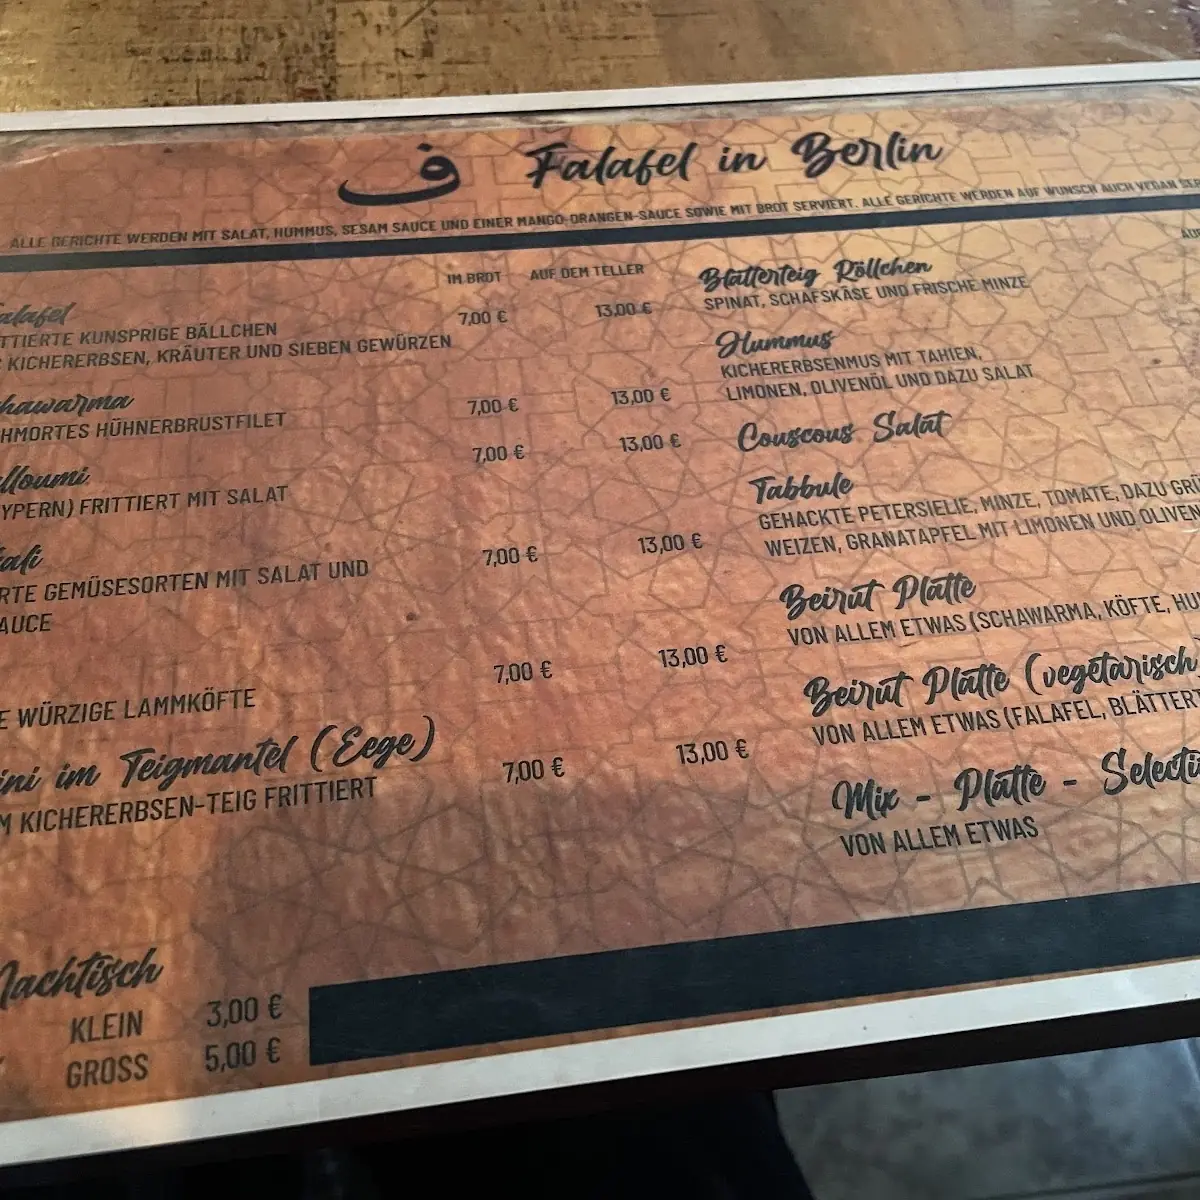 ف Falafel in Berlin
ALLE GERICHTE WERDEN MIT SALAT, HUMMUS, SESAM SAUCE UND EINER MANGO-ORANGEN-SAUCE SOWIE MIT BROT SERVIERT. ALLE GERICHTE WERDEN AUF WUNSCH AUCH VEGAN SER
IM BROT AUF DEM TELLER
alafel 7,00 € 13,00 €
TTIERTE KUNSPRIGE BÄLLCHEN
KICHERERBSEN, KRÄUTER UND SIEBEN GEWÜRZEN
hawarma 7,00 € 13,00 €
HMORTES HÜHNERBRUSTFILET
lloumi 7,00 € 13,00 €
YPERN) FRITTIERT MIT SALAT
ali 7,00 € 13,00 €
RTE GEMÜSESORTEN MIT SALAT UND
AUCE
7,00 € 13,00 €
E WÜRZIGE LAMMKÖFTE
ini im Teigmantel (Eege) 7,00 € 13,00 €
M KICHERERBSEN-TEIG FRITTIERT
Nachtisch
KLEIN 3,00 €
GROSS 5,00 €
AUF
Blätterteig Röllchen
SPINAT, SCHAFSKÄSE UND FRISCHE MINZE
Hummus
KICHERERBSENMUS MIT TAHIEN,
LIMONEN, OLIVENÖL UND DAZU SALAT
Couscous Salat
Tabbule
GEHACKTE PETERSIELIE, MINZE, TOMATE, DAZU GRÜ
WEIZEN, GRANATAPFEL MIT LIMONEN UND OLIVEN
Beirut Platte
VON ALLEM ETWAS (SCHAWARMA, KÖFTE, HU
Beirut Platte (vegetarisch
VON ALLEM ETWAS (FALAFEL, BLÄTTER
Mix - Platte - Selecti
VON ALLEM ETWAS